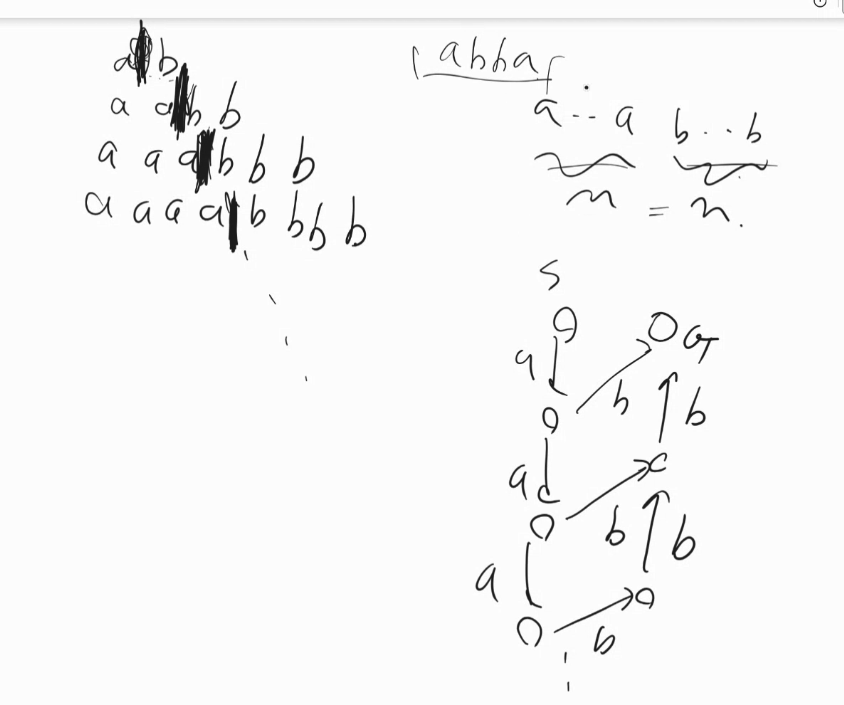 a b
a a b b
a a a b b b
a a a a b b b b
abba
a .. a b ... b
n = n.
S
G
a
b
b
a
b
b
a
b